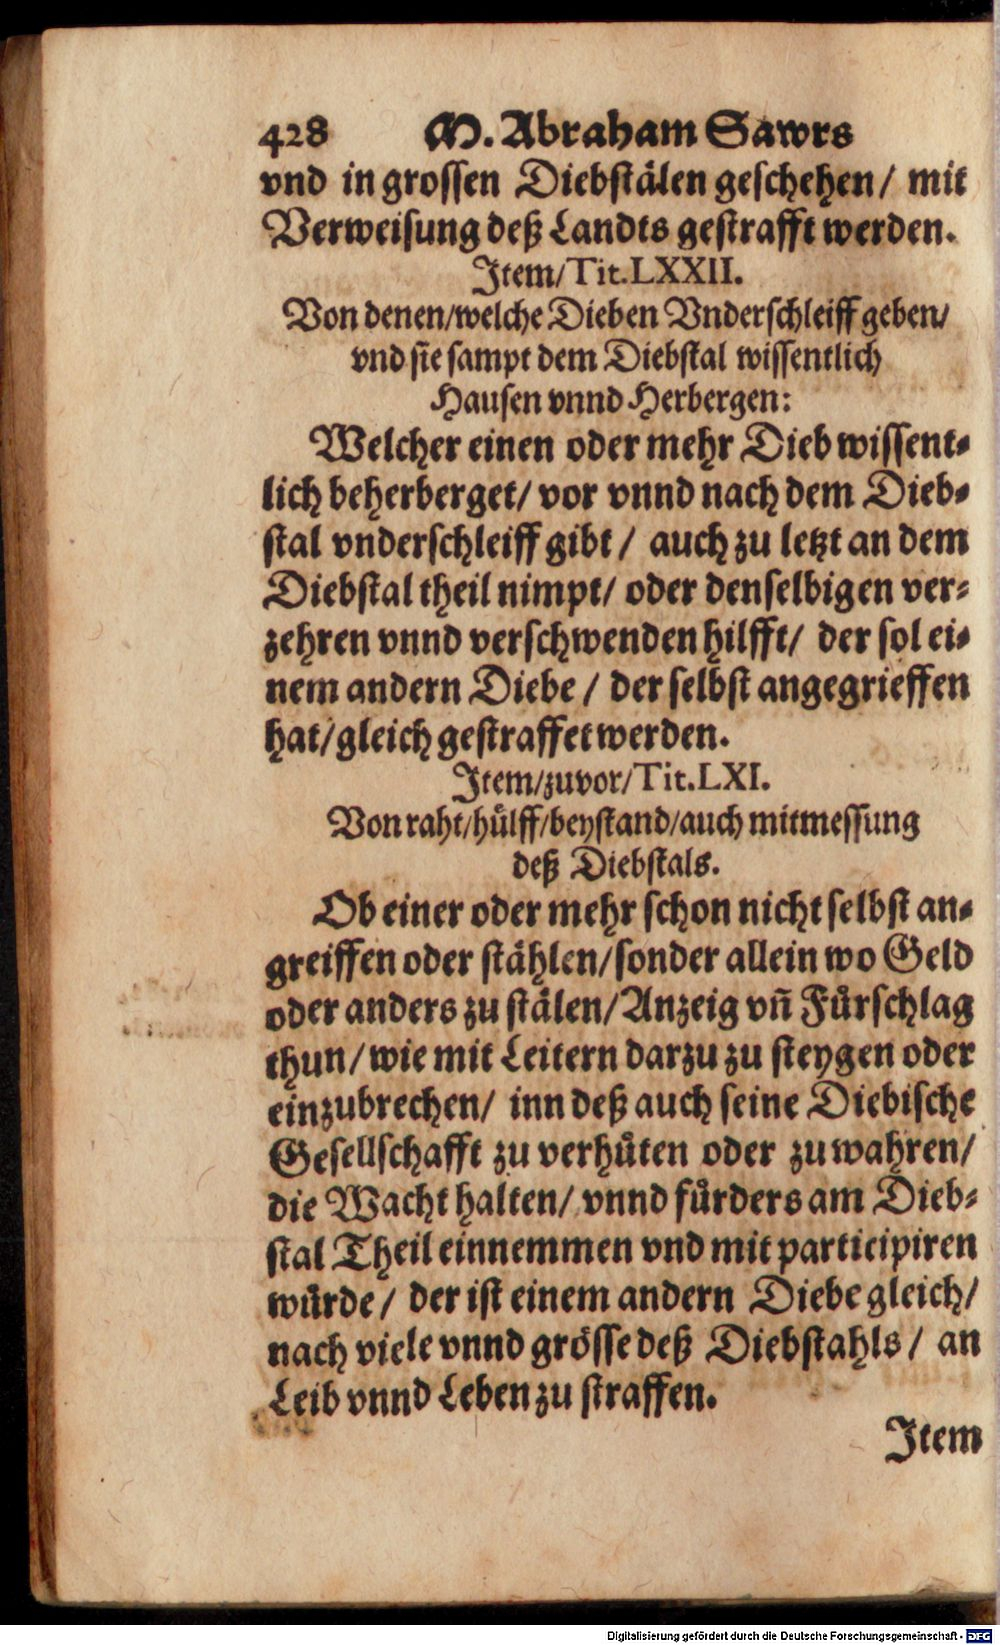 428 M. Abraham Sawrs
vnd in grossen Diebstälen geschehen/ mit
Verweisung deß Landts gestrafft werden.
Item/Tit.LXXII.
Von denen/welche Dieben Vnderschleiff geben/
vnd sie sampt dem Diebstal wissentlich
Hausen vnnd Herbergen:
Welcher einen oder mehr Dieb wissent-
lich beherberget/ vor vnnd nach dem Dieb-
stal vnderschleiff gibt / auch zu letzt an dem
Diebstal theil nimpt/ oder denselbigen ver-
zehren vnnd verschwenden hilfft/ der sol ei-
nem andern Diebe / der selbst angegrieffen
hat/gleich gestraffet werden.
Item/zuvor/Tit.LXI.
Von raht/hülff/beystand/auch mitmessung
deß Diebstals.
Ob einer oder mehr schon nicht selbst an-
greiffen oder stählen/sonder allein wo Geld
oder anders zu stälen/Anzeig vñ Fürschlag
thun/wie mit Leitern darzu zu steygen oder
einzubrechen/ inn deß auch seine Diebische
Gesellschafft zu verhüten oder zu wahren/
die Wacht halten/ vnnd fürders am Dieb-
stal Theil einnemmen vnd mit participiren
würde/ der ist einem andern Diebe gleich/
nach viele vnnd grösse deß Diebstahls / an
Leib vnnd Leben zu straffen.
Item
Digitalisierung gefördert durch die Deutsche Forschungsgemeinschaft - DFG